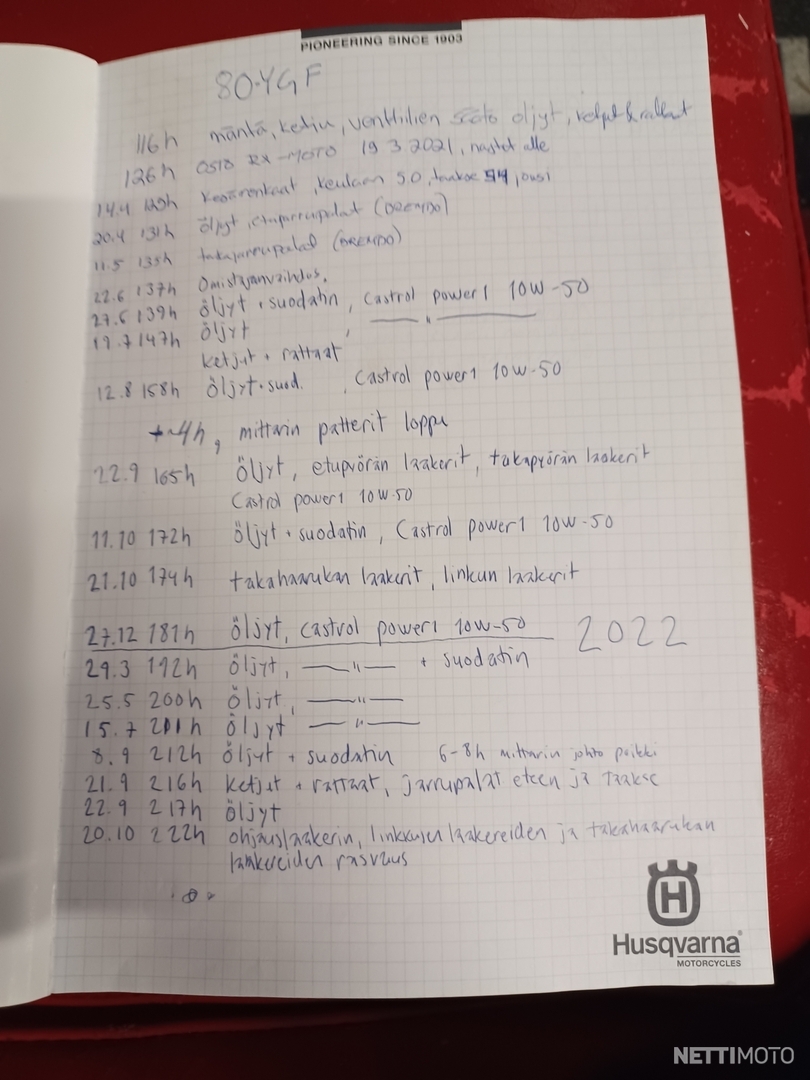 PIONEERING SINCE 1903
80-YGF
116h mäntä, ketju, venttiilien säätö öljyt,
126h OSTO RX-MOTO 19.3.2021, nastat alle
14.4 129h Kesärenkaat, keulaan 50, taakse 54, uusi
20.4 131h öljyt, etujarrupalat (BREMBO)
11.5 135h takajarrupalat (BREMBO)
22.6 137h Omistajanvaihdos.
27.6 139h öljyt + suodatin, Castrol power1 10W-50
19.7 147h öljyt, —"—
ketjut + rattaat
12.8 158h öljyt + suod. , Castrol power1 10W-50
+~4h, mittarin patterit loppu
22.9 165h öljyt, etupyörän laakerit, takapyörän laakerit
Castrol power1 10W-50
11.10 172h öljyt + suodatin, Castrol power1 10W-50
21.10 174h takahaarukan laakerit, linkun laakerit
27.12 181h öljyt, Castrol power1 10W-50 2022
29.3 192h öljyt, —"— + suodatin
25.5 200h öljyt, —"—
15.7 201h öljyt —"—
8.9 212h öljyt + suodatin 6-8h mittarin johto poikki
21.9 216h ketjut + rattaat, jarrupalat eteen ja taakse
22.9 217h öljyt
20.10 222h ohjauslaakerin, linkkujen laakereiden ja takahaarukan
laakereiden rasvaus
H
Husqvarna
MOTORCYCLES
NETTIMOTO